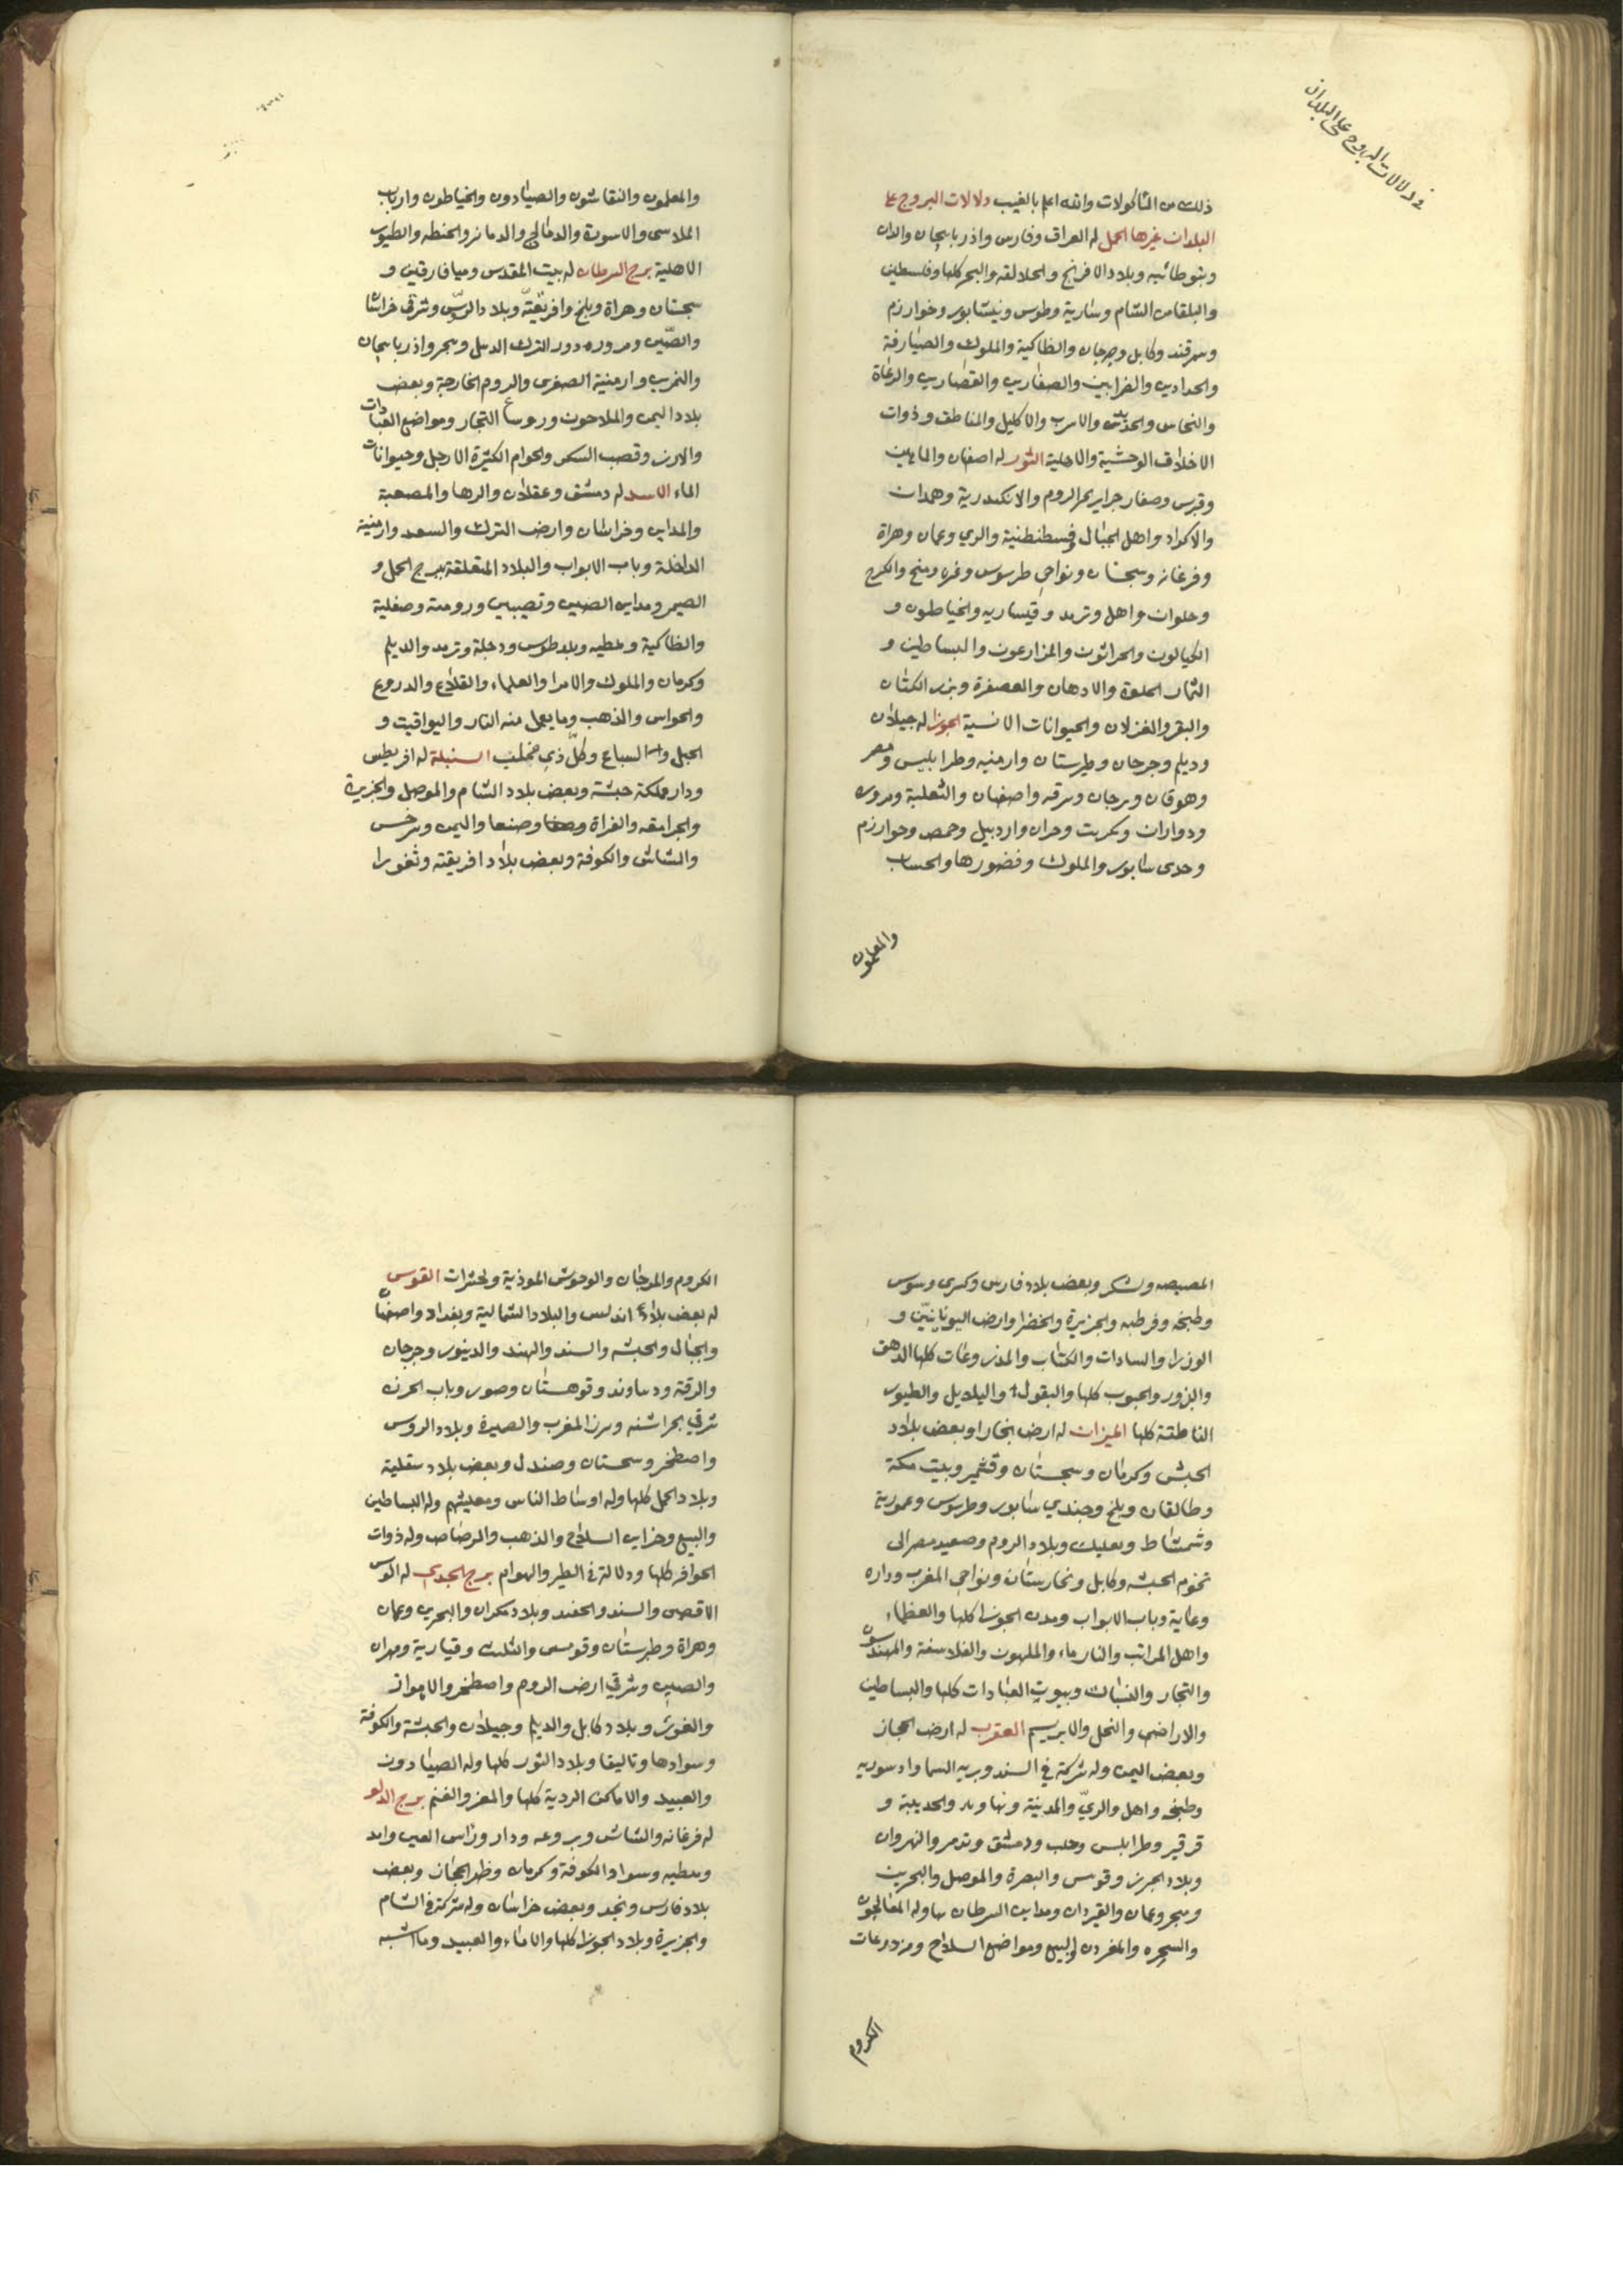 في دلالات البروج على البلدان
ذلك من المأكولات والله اعلم بالغيب دلالات البروج على
البلدان غيرها الحمل له العراق وفارس واذربايجان واللان
وبلاد الافرنج والبحر كلها وفلسطين
والبلقا من الشام وسارية وطوس ونيشابور وخوارزم
وسمرقند وكابل وجرجان وانطاكية والملوك والصيارفة
والحدادين والضرابين والصفارين والقصابين والرعاة
والنحاس والاسرب والاكليل والمناطق وذوات
الاخلاف الوحشية والاهلية الثور له اصفهان والماهين
وقبرس وصغار جزاير بحر الروم والاسكندرية وهمدان
والاكراد واهل الجبال وقسطنطنية والري وعمان وهراة
وفرغانه وسجستان ونواحي طرسوس ومنبج والكرج
وحلوان واهل وترمد وقيساريه والخياطون و
الكيالون والحراثون والمزارعون والبساطين و
الثمار الحلوة والادهان والعصفرة وبزر الكتان
والبقر والغزلان والحيوانات الانسية الجوزا له جيلان
وديلم وجرجان وطبرستان وارمنيه وطرابليس ومصر
وهوقان وبرجان وبرقه واصفهان والثعلبية
وحران واردبيل وحمص وخوارزم
سابور والملوك وقصورها والحساب
والمعلمون
والمعلمون والنقاشون والصيادون والخياطون وارباب
والاسورة والدمالج والحنطه والطيور
الاهلية برج السرطان له بيت المقدس وميافارقين و
سجستان وهراة وبلخ وافريقيّة وبلاد وشرقي خراسان
والصّين ودور الترك وهجر واذربايجان
والمغرب وارمنية الصغرى والروم الخارجة وبعض
بلاد اليمن والملاحون وروساء التجار ومواضع العبادات
والارز وقصب السكر والهوام الكثيرة الارجل وحيوانات
الماء الاسد له دمشق وعسقلان والرها والمصعبة
والمداين وخراسان وارض الترك والسغد وارمنية
الداخلة وباب الابواب والبلاد المتعلقة ببرج الحمل و
ومداين الصين ونصيبين ورومة وصقلية
وانطاكية وملطيه وبلد طوس ودجلة وترمد والديلم
وكرمان والملوك والامرا والعلماء والقلاع والدروع
والحواس والذهب وما يعمل منه النار واليواقيت و
الجبل والسباع وكلّ ذي مخلب السنبلة له اقريطس
ودار مملكة حبشة وبعض بلاد الشام والموصل والجزيرة
والجرامقه والفراة وصنعا واليمن وسرخس
والشاش والكوفة وبعض بلاد افريقته وثغورا
المصيصه وبعض بلاد فارس وكسرى وسوس
وطبخه وقرطبه والجزيرة والخضرا وارض اليونانيّين و
الوزرا والسادات والكتاب كلها
والبزور والحبوب كلها والبقول والبلابيل والطيور
الناطقة كلها الميزان له ارض بخارا وبعض بلاد
الحبش وكرمان وسجستان وقشمير وبيت مكة
وطالقان وبلخ وجندي سابور وطرسوس وعمورية
وشمشاط وبعلبك وبلاد الروم وصعيد مصر الى
تخوم الحبشه وكابل وتخارستان ونواحي المغرب وداره
وعاية وباب الابواب ومدن الجوزا كلها والعظماء
واهل المراتب والندماء والملهون والفلاسفة والمهندسون
والتجار والنساك وبيوت العبادات كلها والبساطين
والاراضى والنخل والابريسم العقرب له ارض الحجاز
وبعض اليمن وله شركة في السند وبريه السماوا وسوريه
وطبخه واهل والريّ والمدينة ونهاوند والحديبة و
قرقير وطرابلس وحلب ودمشق وتدمر والنهروان
وبلاد الجزر وقومس والبصرة والموصل والبحرين
وهجر وعمان والقيردان ومداين السرطان وله المعالجون
والسحره والبيع ومواضع السلاح ومزدرعات
الكروم
الكروم والمرجان والوحوش الموذية والحشرات القوس
له بعض بلاد اندلس والبلاد الشمالية وبغداد واصفهان
والجبال والحبشه والسند والهند والدينور وجرجان
والرقة ودماوند وقوهستان وصور وباب الحرن
المغرب والصميرة وبلاد الروس
واصطخر وسجستان وصندل وبعض بلاد سقلية
وبلاد الحمل كلها وله اوساط الناس ومعيشتهم وله البساطين
والبيع وخزاين السلاح والذهب والرصاص وله ذوات
الحوافر كلها ودلالة في الطير والهوام برج الجدي له
الاقصى والسند والهند وبلاد مكران والبحرين وعمان
وهراة وطبرستان وقومس والثلث وقيسارية ومهران
والصين وشرقي ارض الروم واصطخر والاهواز
والغوش وبلاد كابل والديلم وجيلان والحبشة والكوفة
وسوادها وتاليقا وبلاد الثور كلها وله الصيادون
والعبيد والاماكن الردية كلها والمعز والغنم برج الدلو
له فرغانه والشاش وراس العين وامد
وملطيه وسواد الكوفة وكرمان وظهر الحجاز وبعض
بلاد فارس ونجد وبعض خراسان وله شركة في الشام
والجزيرة وبلاد الجوزا كلها والاماء والعبيد وما اشبه